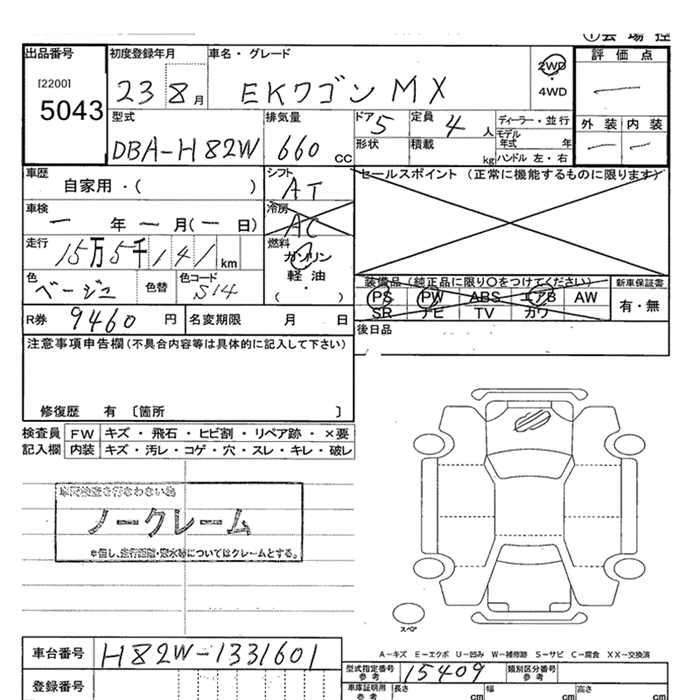 出品番号
[2200]
5043
初度登録年月
23 8月
車名・グレード
EKワゴン MX
2WD
・
4WD
評価点
—
外装 内装
— —
型式
DBA-H82W
排気量
660 cc
ドア 5
定員 4 人
形状
積載 kg
ディーラー・並行
モデル
年式 年
ハンドル 左・右
車歴
自家用・( )
シフト
AT
車検
— 年 — 月(— 日)
冷房
AC
走行
15万5千141km
燃料
ガソリン
軽油
( )
色
ベージュ
色替
色コード
S14
R券 9460 円
名変期限 月 日
セールスポイント (正常に機能するものに限ります)
装備品 (純正品に限り○をつけてください)
PS PW ABS エアB AW
SR ナビ TV カワ
新車保証書
有・無
後日品
注意事項申告欄(不具合内容等は具体的に記入して下さい)
修復歴 有 〔箇所 〕
検査員 FW キズ・飛石・ヒビ割・リペア跡・×要
記入欄 内装 キズ・汚レ・コゲ・穴・スレ・キレ・破レ
ノークレーム
スペア
A-キズ E-エクボ U-凹み W-補修跡 S-サビ C-腐食 XX-交換済
車台番号 H82W-1331601
登録番号
型式指定番号
参考
15409
類別区分番号
参考
車庫証明用
参考
長さ cm
幅 cm
高さ cm